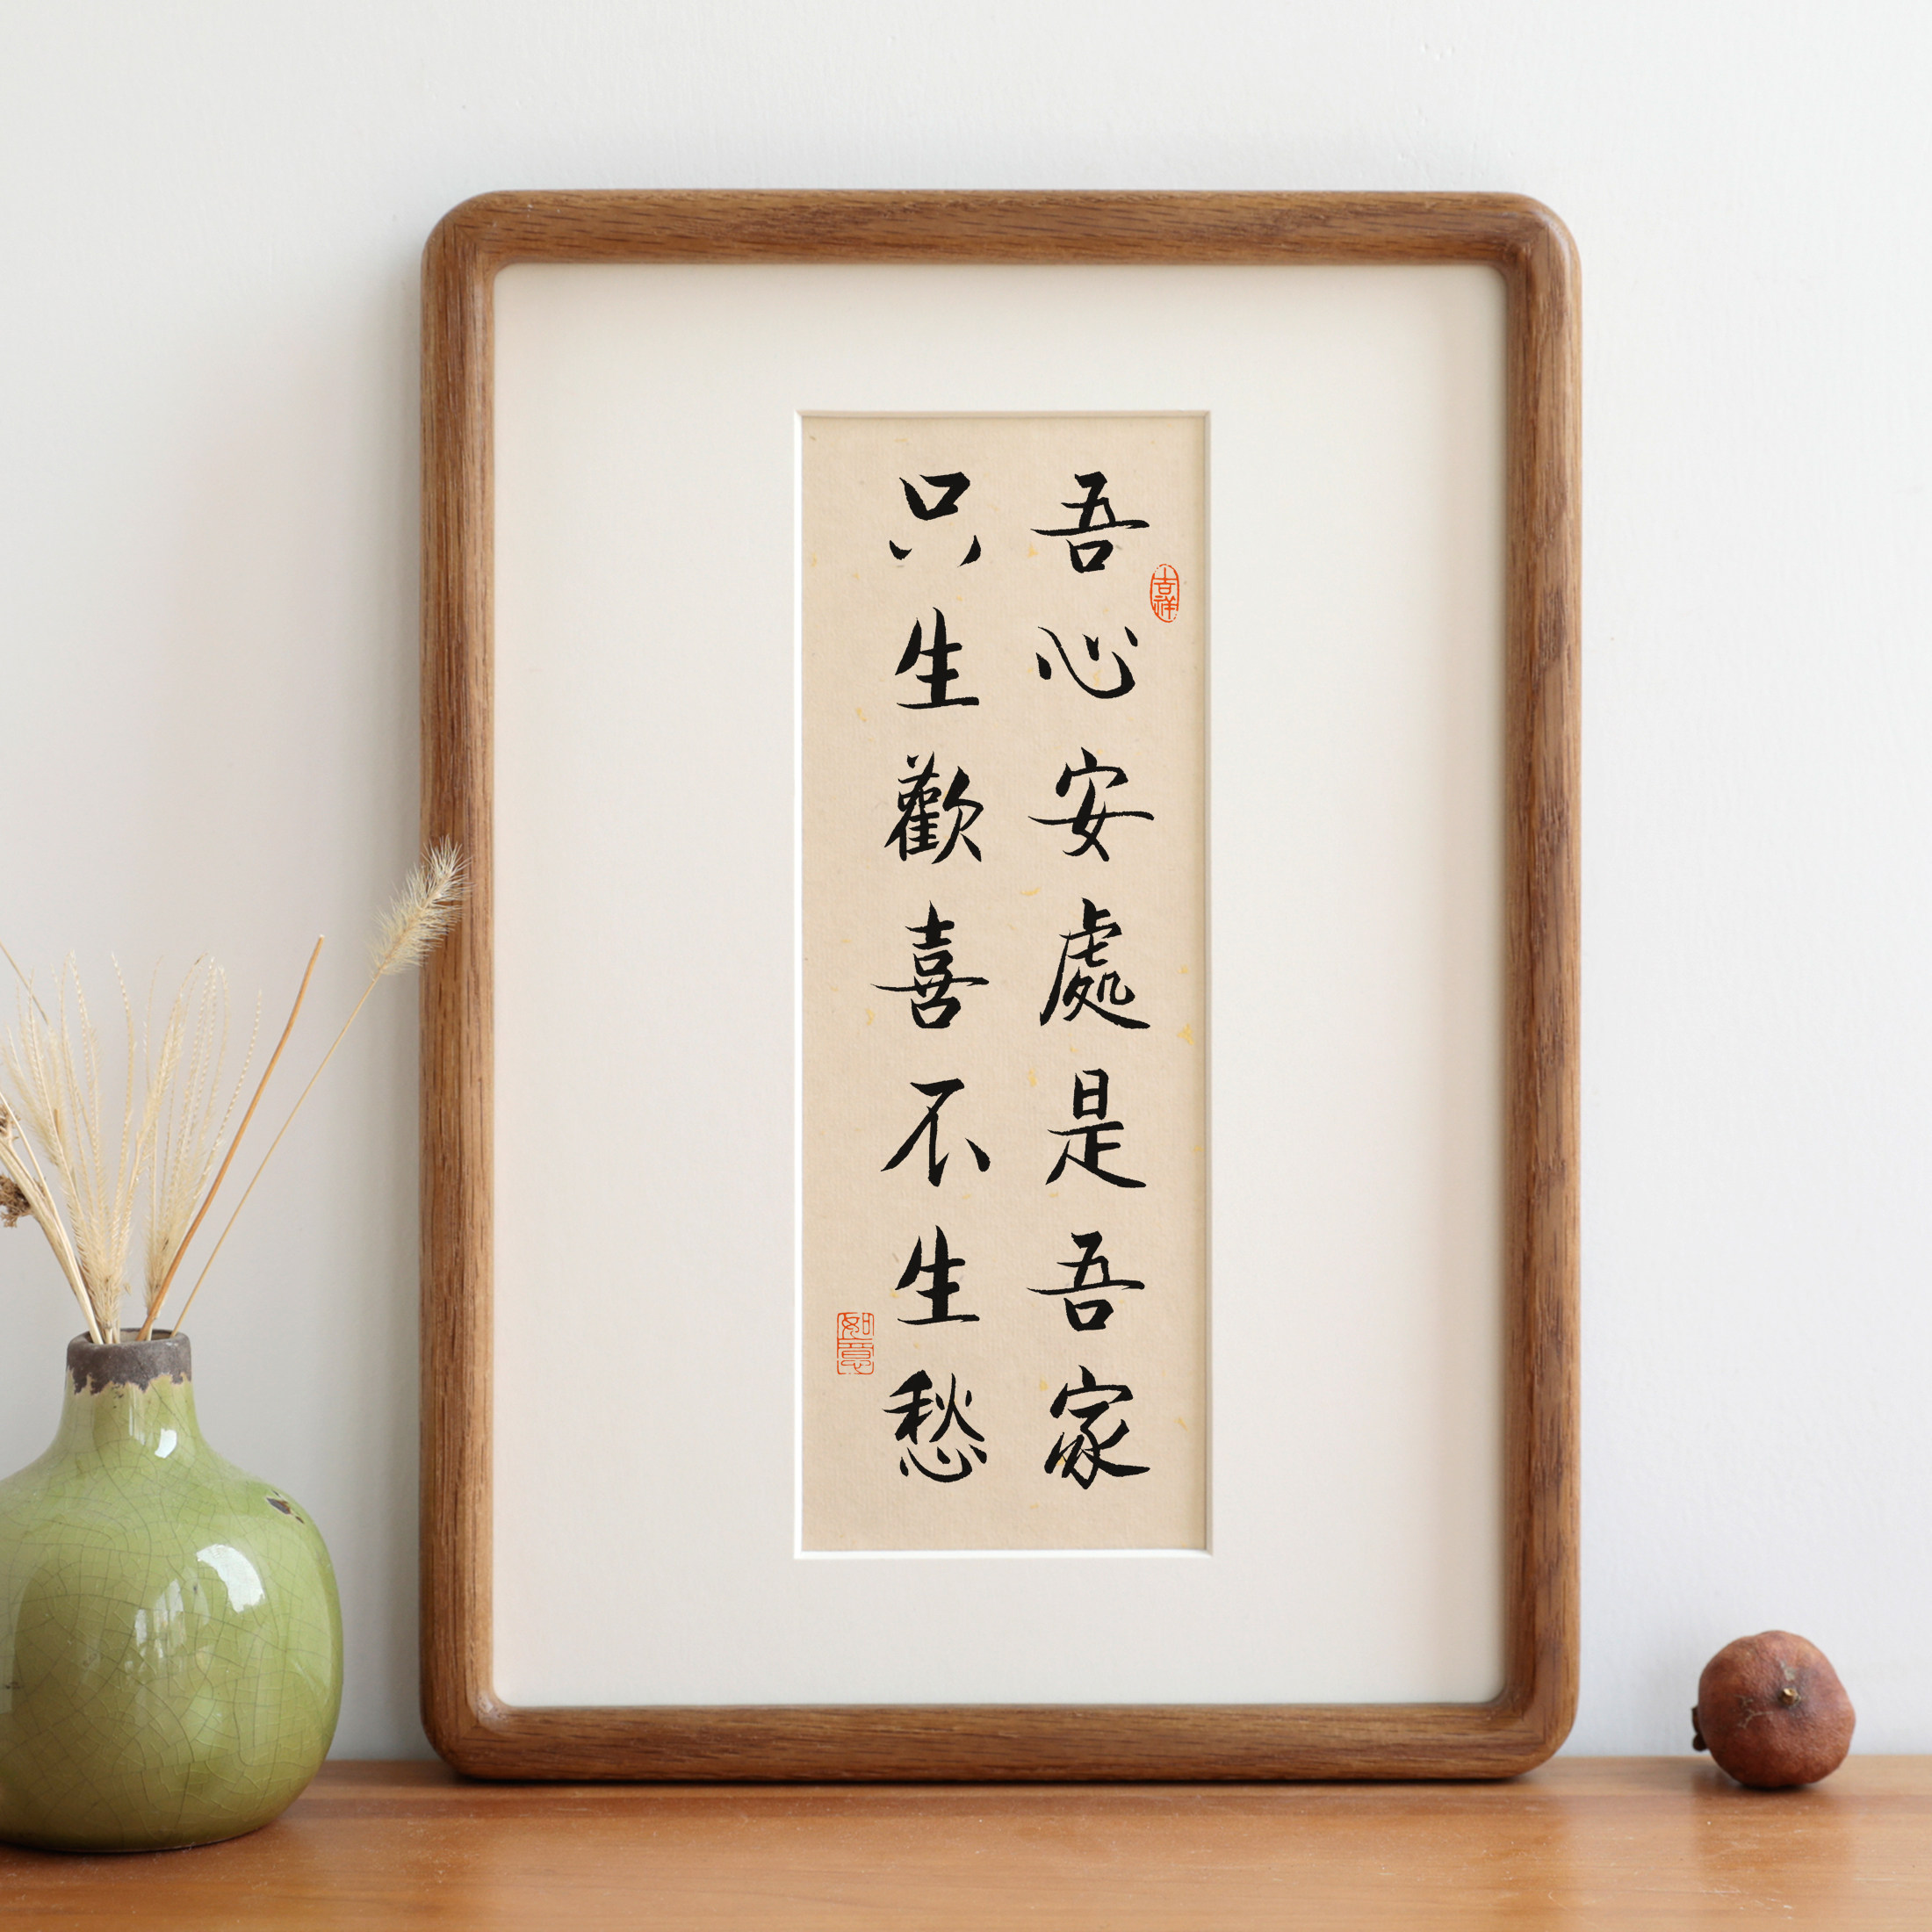 吾心安處是吾家
只生歡喜不生愁
吉祥
如意